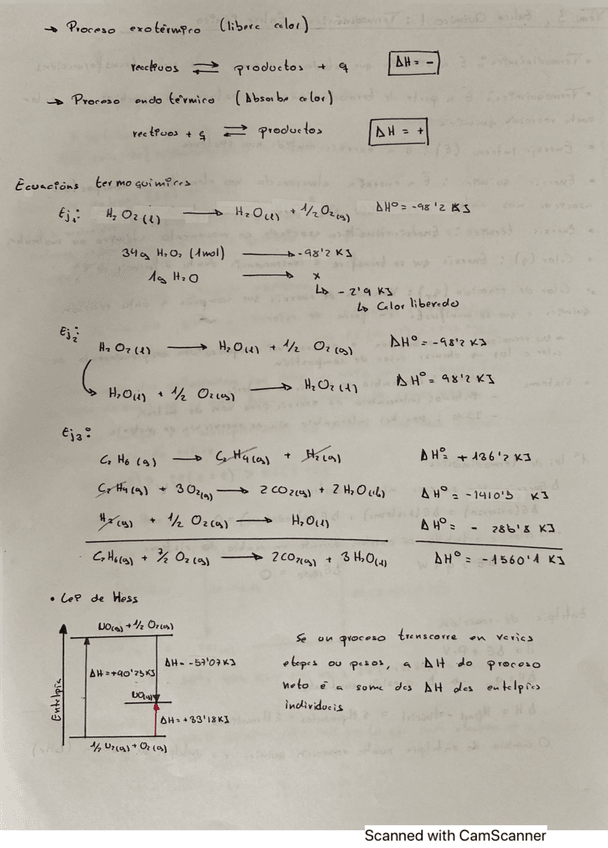 → Proceso exotérmico (libera calor)
reactivos ⇌ productos + q ΔH = -
→ Proceso endotérmico (Absorbe calor)
rectivos + q ⇌ productos ΔH = +
Ecuacións termoquímicas
Ej1: H2O2(l) → H2O(l) + 1/2 O2(g) ΔHº = -98'2 KJ
34g H2O2 (1mol) → -98'2 KJ
1g H2O → x
↳ -2'9 KJ
↳ Calor liberado
Ej2:
H2O2(l) → H2O(l) + 1/2 O2(g) ΔHº = -98'2 KJ
H2O(l) + 1/2 O2(g) → H2O2(l) ΔHº = 98'2 KJ
Ej3:
C2H6(g) → C2H4(g) + H2(g) ΔHº = +136'2 KJ
C2H4(g) + 3O2(g) → 2CO2(g) + 2H2O(l) ΔHº = -1410'5 KJ
H2(g) + 1/2 O2(g) → H2O(l) ΔHº = - 286'8 KJ
C2H6(g) + 7/2 O2(g) → 2CO2(g) + 3H2O(l) ΔHº = -1560'1 KJ
• Lei de Hess
Entalpía
NO(g) + 1/2 O2(g)
ΔH = +90'25KJ
ΔH = -57'07KJ
NO2(g)
ΔH = +33'18KJ
1/2 N2(g) + O2(g)
Se un proceso transcorre en varias
etapas ou pasos, a ΔH do proceso
neto é a suma das ΔH das entalpías
individuais
Scanned with CamScanner